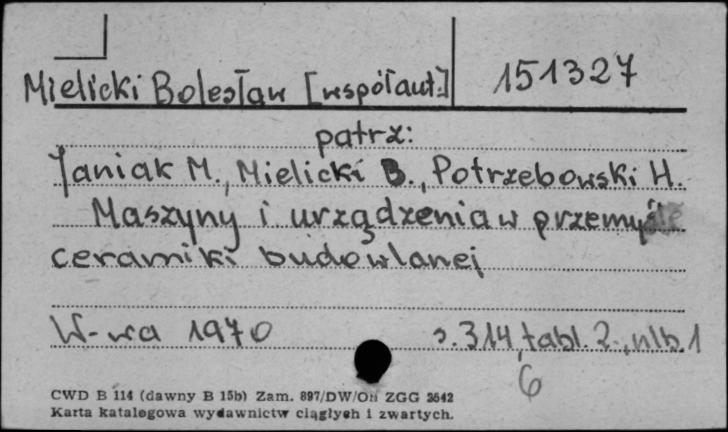 Mielicki Bolesław [współaut.] 151327
patrz:
Janiak M., Mielicki B., Potrzebowski H.
Maszyny i urządzenia w przemyśle
ceramiki budowlanej
W-wa 1970 s. 314, tabl. 2., nlb. 1
6
CWD B 114 (dawny B 15b) Zam. 897/DW/Oh ZGG 2642
Karta katalogowa wydawnictw ciągłych i zwartych.